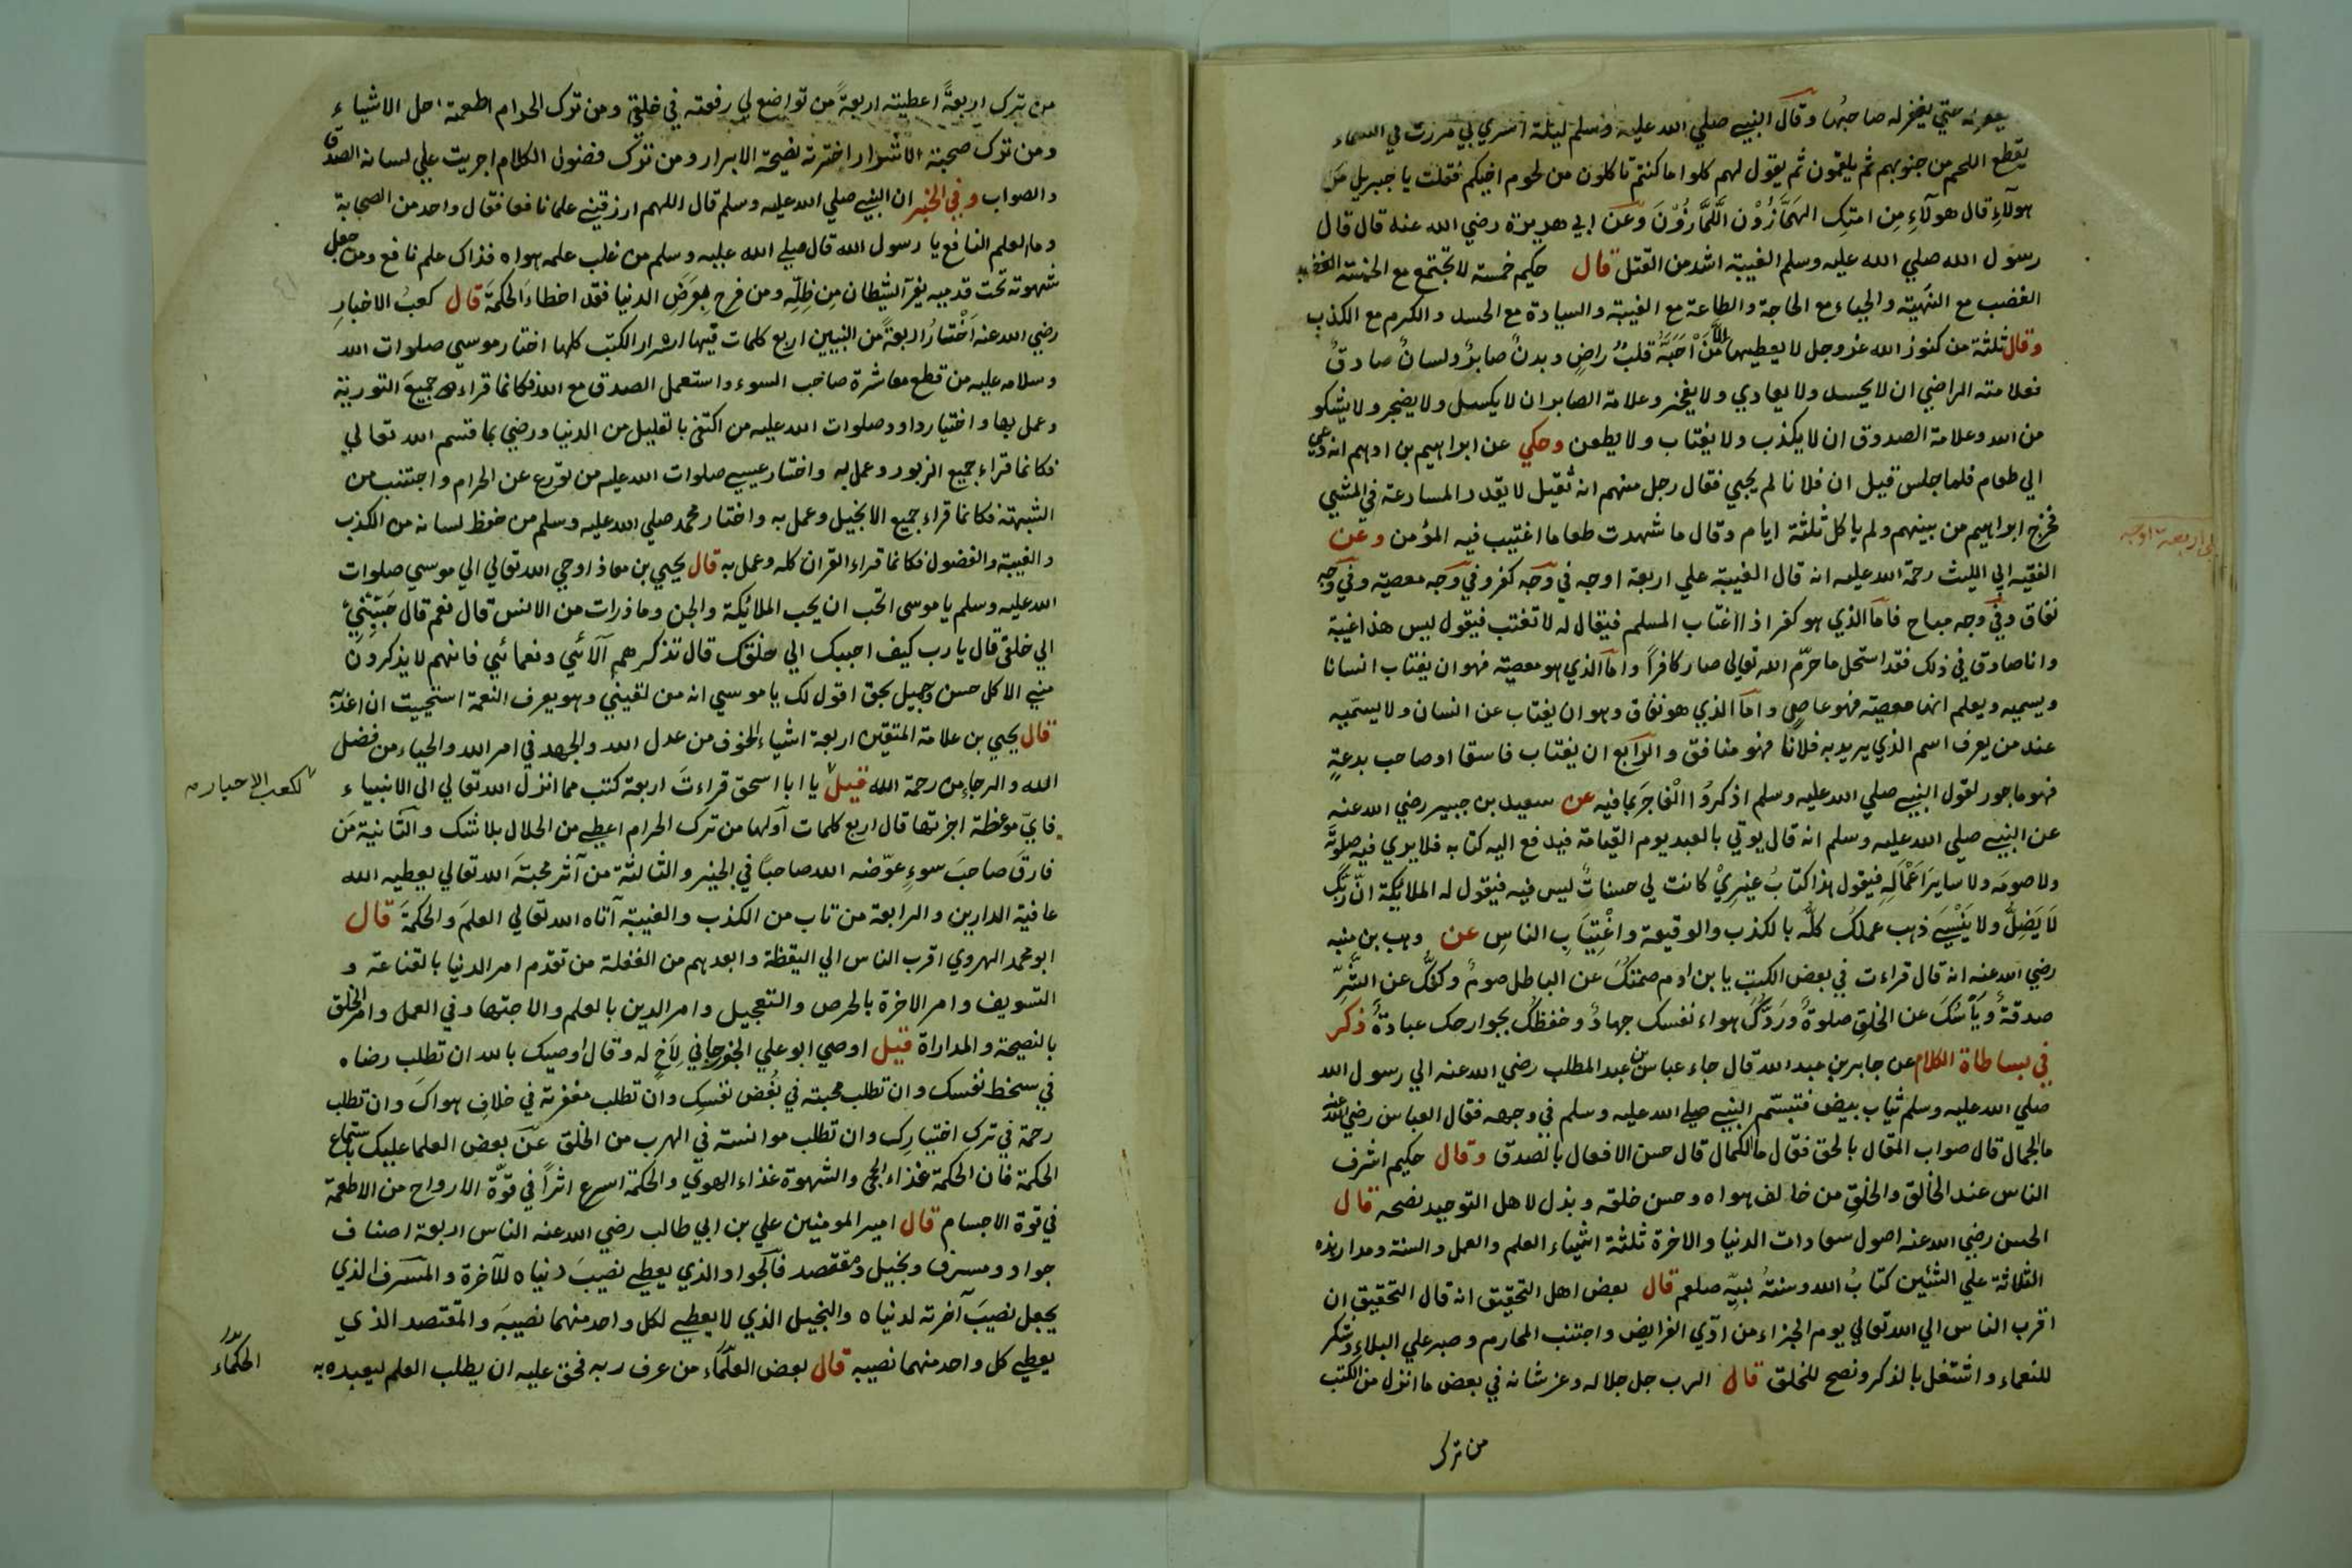 يغفر له حتي يغفر له صاحبُها وقال النبي صلي الله عليه وسلم ليلة اسري بي مررت في السماء
يقطع اللحم من جنوبهم ثم يلقمون ثم يقول لهم كلوا ما كنتم تاكلون من لحوم اخيكم فقلت يا جبريل من
هولآءِ قال هولآءِ مِن امتك الهَمَّازُوْن اللَّمَّازُوْنَ وعن ابي هريرة رضي الله عنه قال قال
رسول الله صلي الله عليه وسلم الغيبة اشد من القتل قال حكيم خمسة لا تجتمع مع الخمسة
الغضب مع التهيّة والحياء مع الحاجة والطاعة مع الغيبة والسيادة مع الحسد والكرم مع الكذب
وقال ثلثة من كنوز الله عز وجل لا يعطيها الّا مَنْ اَحَبَّهُ قلبٌ راضٍ وبدنٌ صابرٌ ولسانٌ صادقٌ
فعلامته الراضي ان لا يحسد ولا يعادي ولا يفخر وعلامة الصابر ان لا يكسل ولا يضجر ولا يشكو
من الله وعلامة الصدوق ان لا يكذب ولا يغتاب ولا يطعن وحكي عن ابراهيم بن ادهم انه دعي
الي طعام فلما جلس قيل ان فلانا لم يجي فقال رجل منهم انه ثقيل لا يقدر المسارعة في المشي
فخرج ابراهيم من بينهم ولم ياكل ثلثة ايام وقال ما شهدت طعاما اغتيب فيه المؤمن وعن
الفقيه ابي الليث رحمة الله عليه انه قال الغيبة علي اربعة اوجه في وجه كفر وفي وجه معصية وفي وجه
نفاق وفي وجه مباح فاما الذي هو كفر اذا اغتاب المسلم فيقال له لا تغتب فيقول ليس هذا غيبة
وانا صادق في ذلك فقد استحل ما حرّم الله تعالي صار كافراً واما الذي هو معصية فهو ان يغتاب انسانا
ويسميه ويعلم انها معصية فهو عاصي واما الذي هو نفاق وهو ان يغتاب عن انسان ولا يسمّيه
عند من يعرف اسم الذي يريد به فلانا فهو منافق والرابع ان يغتاب فاسقا او صاحب بدعةٍ
فهو ماجور لقول النبي صلي الله عليه وسلم اذكرُوا الْفَاجرَ بما فيه عن سعيد بن جبير رضي الله عنه
عن النبي صلي الله عليه وسلم انه قال يوتي بالعبد يوم القيامة فيدفع اليه كتابه فلا يري فيه صلوتَه
ولا صومَه ولا سايرَ اَعْمَالِهِ فيقول هذا كتابُ غيرِيْ كانت لي حسناتٌ ليس فيه فيقول له الملائكة انّ ربّك
لَا يَضِلُّ ولا يَنْسٰي ذهب عملكَ كلُّه بالكذب والوقيعة واغْتِيَابِ الناسِ عن وهب بن منبه
رضي الله عنه انه قال قراءت في بعض الكتب يا بن ادم صمتكُ عن الباطل صومٌ وكفُّك عن الشّرِّ
صدقةٌ ويَأْسُكَ عن الخلقِ صلوةٌ ورَدُّكَ هواء نفسك جهادٌ وحفظكَ بجوارحك عبادةٌ ذكر
في بساطاة الكلام عن جابر بن عبد الله قال جاء عباس بن عبد المطلب رضي الله عنه الي رسول الله
صلي الله عليه وسلم ثياب بيض فتبسّم النبي صلي الله عليه وسلم في وجهه فقال العباس رضي الله عنه
ما الجمال قال صواب المقال بالحق فقال ما الكمال قال حسن الافعال بالصدق وقال حكيم اشرف
الناس عند الخالق والخلقِ من خالف هواه وحسن خلقه وبذل لاهل التوحيد نصحه قال
الحسن رضي الله عنه اصول سعادات الدنيا والاخرة ثلثة اشياء العلم والعمل والسنة ومدار هذه
الثلاثة علي الشيئين كتابُ الله وسنةُ نبيّه صلعم قال بعض اهل التحقيق انه قال التحقيق ان
اقرب الناس الي الله تعالي يوم الجزاء من ادّي الفرايض واجتنب المحارم وصبر علي البلاء وشكر
للنعماء واشتغل بالذكر ونصح للخلق قال الرب جل جلاله وعز شانه في بعض ما انزل من الكتب
من ترك
علي اربعة اوجه
من ترك اربعةً اعطيته اربعةً من تواضع لي رفعته في خلقي ومن ترك الحرام اطعمته احل الاشياء
ومن ترك صحبة الاشرار اخترته نصيحة الابرار ومن ترك فضول الكلام اجريت علي لسانه الصدق
والصواب وفي الخبر ان النبي صلي الله عليه وسلم قال اللهم ارزقني علما نافعا فقال واحد من الصحابة
وما العلم النافع يا رسول الله قال صلي الله عليه وسلم من غلب علمه هواه فذاك علم نافع ومن جعل
شهوته تحت قدميه يفرّ الشيطان مِن ظِلِّهِ ومن فرح بِعَرَضِ الدنيا فقد اخطاءَ الحكمةَ قال كعبُ الاخبارِ
رضي الله عنه اَخْتَارُ اربعةً من النبيين اربع كلمات فيها اسرار الكتب كلها اختار موسي صلوات الله
وسلامه عليه من قطع معاشرة صاحب السوء واستعمل الصدق مع الله فكانما قراء جميعَ التورية
وعمل بها واختيار داود صلوات الله عليه من اكتفي بالقليل من الدنيا ورضي بما قسم الله تعالي
فكانما قراء جميع الزبور وعمل به واختار عيسي صلوات الله عليه من تورع عن الحرام واجتنب من
الشبهة فكانما قراء جميع الانجيل وعمل به واختار محمد صلي الله عليه وسلم من حفظ لسانه من الكذب
والغيبة والفضول فكانما قراء القران كله وعمل به قال يحيي بن معاذ اوحي الله تعالي الي موسي صلوات
الله عليه وسلم يا موسي اتحب ان يحب الملائكة والجن وما ذرات من الانس قال نعم قال حَبِّبْنِيْ
الي خلقي قال يا رب كيف احببك الي خلقك قال تذكرهم آلائي ونعمائي فانهم لا يذكرون
مني الا كل حسن وجميل بحق اقول لك يا موسي انه من لقيني وهو يعرف النعمة استحييت ان اعذّبه
قال يحيي بن علامة المتقين اربعة اشياء الخوف من عدل الله والجهد في امر الله والحياء من فضل
الله والرجاءِ من رحمة الله قيل يا ابا اسحق قراءتَ اربعة كتب مما انزل الله تعالي الي الانبياء
فايّ موعظة اجزتها قال اربع كلمات اَولها من ترك الحرام اعطي من الحلال بلا شك والثانية مَن
فارقَ صاحبَ سوءٍ عوّضه الله صاحباً في الخير والثالثة من آثر محبة الله تعالي يعطيه الله
عافية الدارين والرابعة من تاب من الكذب والغيبة آتاه الله تعالي العلمَ والحكمةَ قال
ابو محمد الهروي اقرب الناس الي اليقظة وابعدهم من الغفلة من تقدم امر الدنيا بالقناعة و
التسويف وامر الاخرة بالحرص والتعجيل وامر الدين بالعلم والاجتهاد في العمل وامر الخلق
بالنصيحة والمداراة قيل اوصي ابو علي الجوزجاني لِاَخٍ له وقال اوصيك بالله ان تطلب رضاه
في سخط نفسك وان تطلب محبته في بُغض نفسِك وان تطلب مغفرته في خلافِ هواكَ وان تطلب
رحمة في تركِ اختيارِك وان تطلب موانسته في الهرب من الخلق عن بعض العلما عليك باستماع
الحكمة فان الحكمة غذاء الحجي والشهوة غذاء الهوي والحكمة اسرع اثراً في قوّة الارواح من الاطعمة
في قوة الاجسام قال امير المومنين علي بن ابي طالب رضي الله عنه الناس اربعة اصناف
جواد ومسرف وبخيل ومقتصد فالجواد الذي يعطي نصيبَ دنياه للآخرة والمسرف الذي
يجعل نصيبَ آخرته لدنياه والبخيل الذي لا يعطي لكل واحد منهما نصيبَه والمقتصد الذي
يعطي كل واحد منهما نصيبه قال بعض العلماء من عرف ربه فحق عليه ان يطلب العلم ليعبده به
لكعب الاحبار
الحكماء